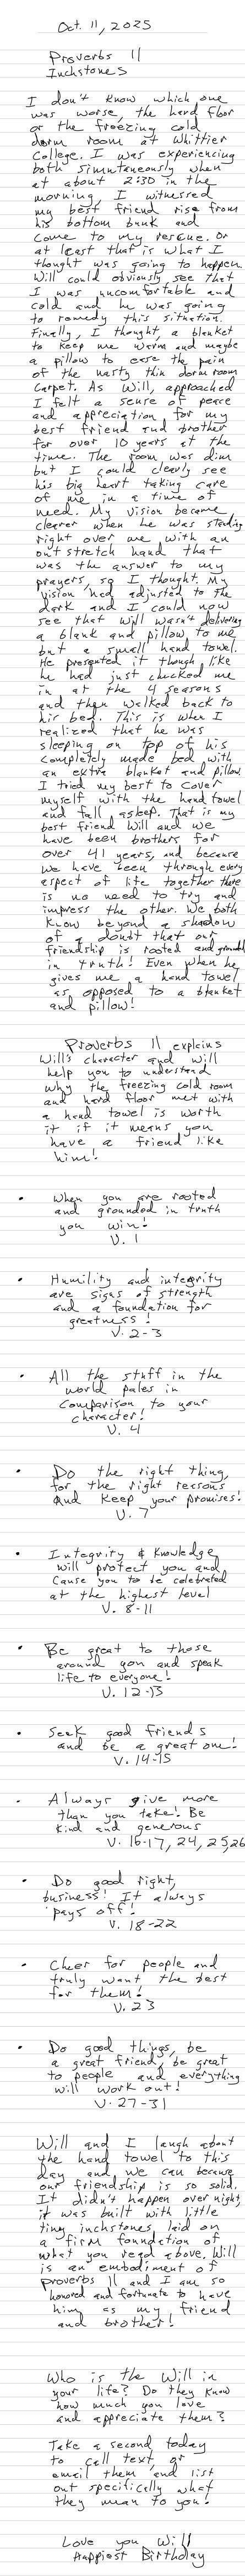 Oct. 11, 2025
Proverbs 11
Inchstones
I don't know which one
was worse, the hard floor
or the freezing cold
dorm room at Whittier
College. I was experiencing
both simultaneously when
at about 2:30 in the
morning I witnessed
my best friend rise from
his bottom bunk and
come to my rescue. Or
at least that is what I
thought was going to happen.
Will could obviously see that
I was uncomfortable and
cold and he was going
to remedy this situation.
Finally, I thought, a blanket
to keep me warm and maybe
a pillow to ease the pain
of the nasty thin dorm room
carpet. As Will, approached
I felt a sense of peace
and appreciation for my
best friend and brother
for over 10 years at the
time. The room was dim
but I could clearly see
his big heart taking care
of me in a time of
need. My vision became
clearer when he was standing
right over me with an
outstretch hand that
was the answer to my
prayers, so I thought. My
vision had adjusted to the
dark and I could now
see that Will wasn't delivering
a blank and pillow to me
but a small hand towel.
He presented it though like
he had just checked me
in at the 4 seasons
and then walked back to
his bed. This is when I
realized that he was
sleeping on top of his
completely made bed with
an extra blanket and pillow.
I tried my best to cover
myself with the hand towel
and fall asleep. That is my
best friend Will and we
have been brothers for
over 41 years, and because
we have been through every
aspect of life together there
is no need to try and
impress the other. We both
know beyond a shadow
of a doubt that our
friendship is rooted and grounded
in truth! Even when he
gives me a hand towel
as opposed to a blanket
and pillow!
Proverbs 11 explains
Will's character and will
help you to understand
why the freezing cold room
and hard floor met with
a hand towel is worth
it if it means you
have a friend like
him!
• When you are rooted
and grounded in truth
you win!
V. 1
• Humility and integrity
are signs of strength
and a foundation for
greatness!
V. 2-3
• All the stuff in the
world pales in
comparison to your
character!
V. 4
• Do the right thing,
for the right reasons
and keep your promises!
V. 7
• Integrity & Knowledge
will protect you and
cause you to be celebrated
at the highest level
V. 8-11
• Be great to those
around you and speak
life to everyone!
V. 12-13
• Seek good friends
and be a great one!
V. 14-15
• Always give more
than you take! Be
kind and generous
V. 16-17, 24, 25, 26
• Do good right,
business! It always
pays off!
V. 18-22
• Cheer for people and
truly want the best
for them!
V. 23
• Do good things, be
a great friend, be great
to people and everything
will work out!
V. 27-31
Will and I laugh about
the hand towel to this
day and we can because
our friendship is so solid.
It didn't happen over night,
it was built with little
tiny inchstones laid on
a firm foundation of
what you read above. Will
is an embodiment of
Proverbs 11 and I am so
honored and fortunate to have
him as my friend
and brother!
Who is the Will in
your life? Do they know
how much you love
and appreciate them?
Take a second today
to call text or
email them and list
out specifically what
they mean to you!
Love you Will
Happiest Birthday